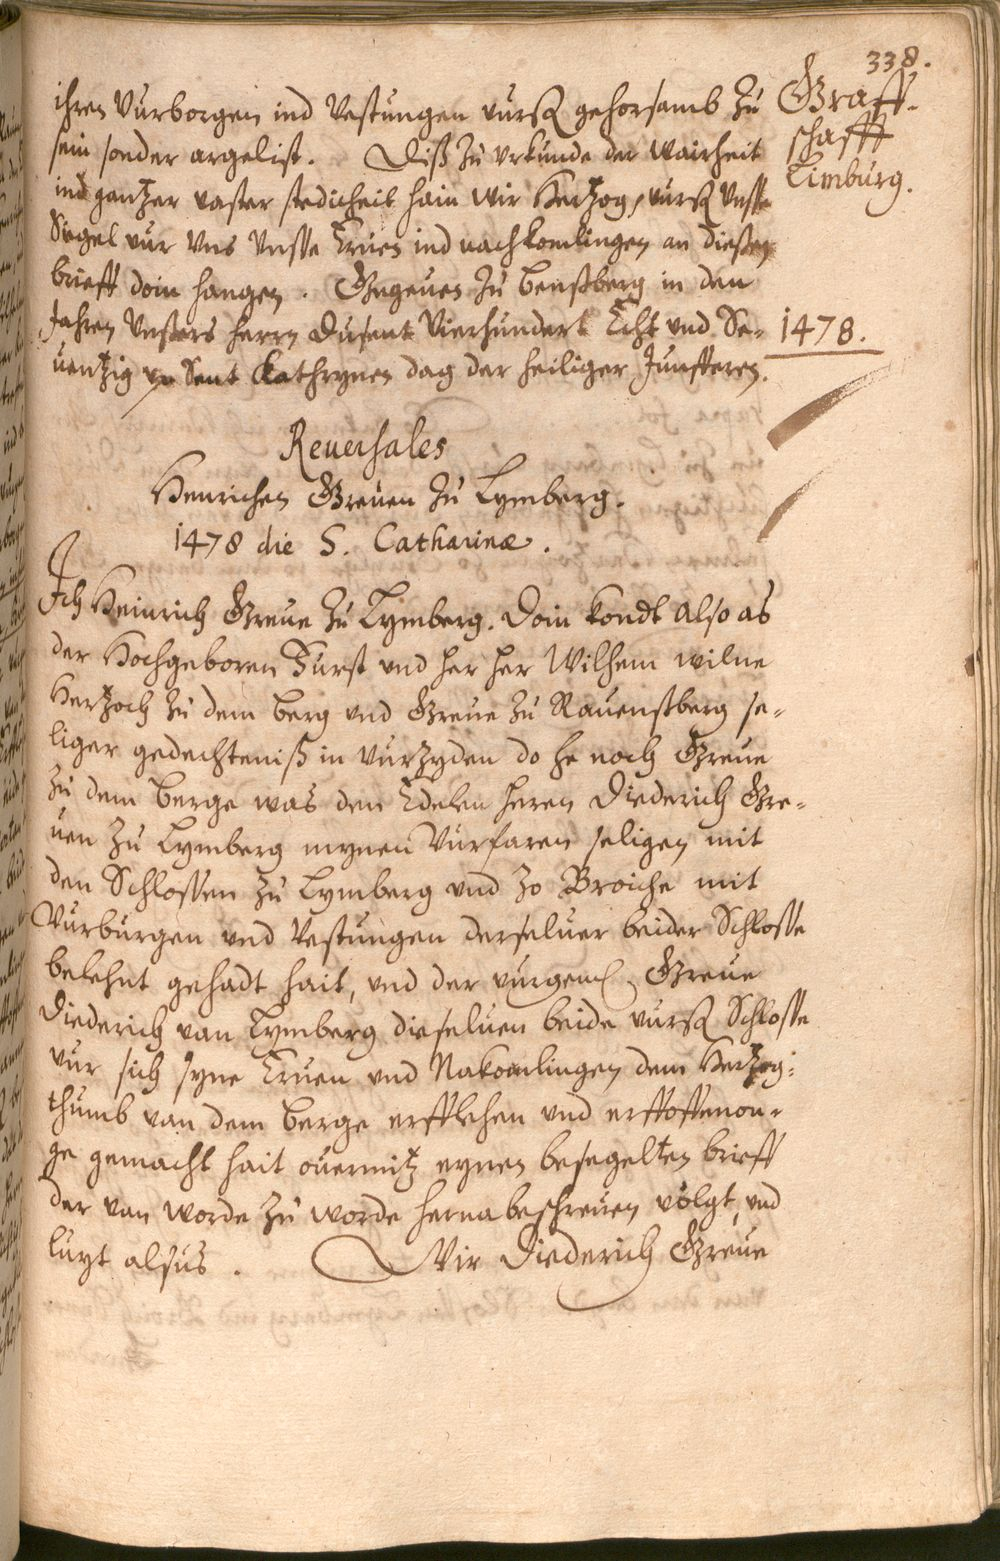 338.
Graff-
schafft
Limburg.
ihren Vurborgen ind Vestungen vurß gehorsamb zu
sein sonder argelist. Diß zu Urkunde der Wairheit
ind gantzer vaster stedicheit hain wir Hertzog vurß Unsse
Siegel vur Uns Unsse Erven ind nachkomlingen an diesen
brieff doin hangen. Gegeven zu Benßberg in den
Jahren Unssers herrn Dusent Vierhundert Echt und Se-
1478.
ventzig up Sent Kathrynen dag der heiliger Junfferen.
Reuersales
Henrichen Greven zu Lymberg.
1478 die S. Catharinæ.
Ich Heinrich Greve zu Lymberg. Doin kondt also as
der Hochgeboren Furst und her her Wilhem wilne
Hertzoch zu dem berg und Greve zu Ravenßberg se-
liger gedechteniß in vurzyden do he noch Greve
zu dem berge was den Edelen heren Diederich Gre-
ven zu Lymberg mynen Vurfaren seligen mit
den Schlossen zu Lymberg und zo Broiche mit
Vurburgen und Vestungen derselver beider Schlosse
belehnt gehadt hait, und der vurgem. Greve
Diederich van Lymberg dieselven beide vurß Schlosse
vur sich syne Erven und Nakomlingen dem Hertzog-
thumb van dem berge erfflehen und erffoffenon-
ge gemacht hait overmitz eynen besegelten brieff
der van worde zu worde hernabeschreven volgt, und
luyt alsus. Wir Diederich Greve